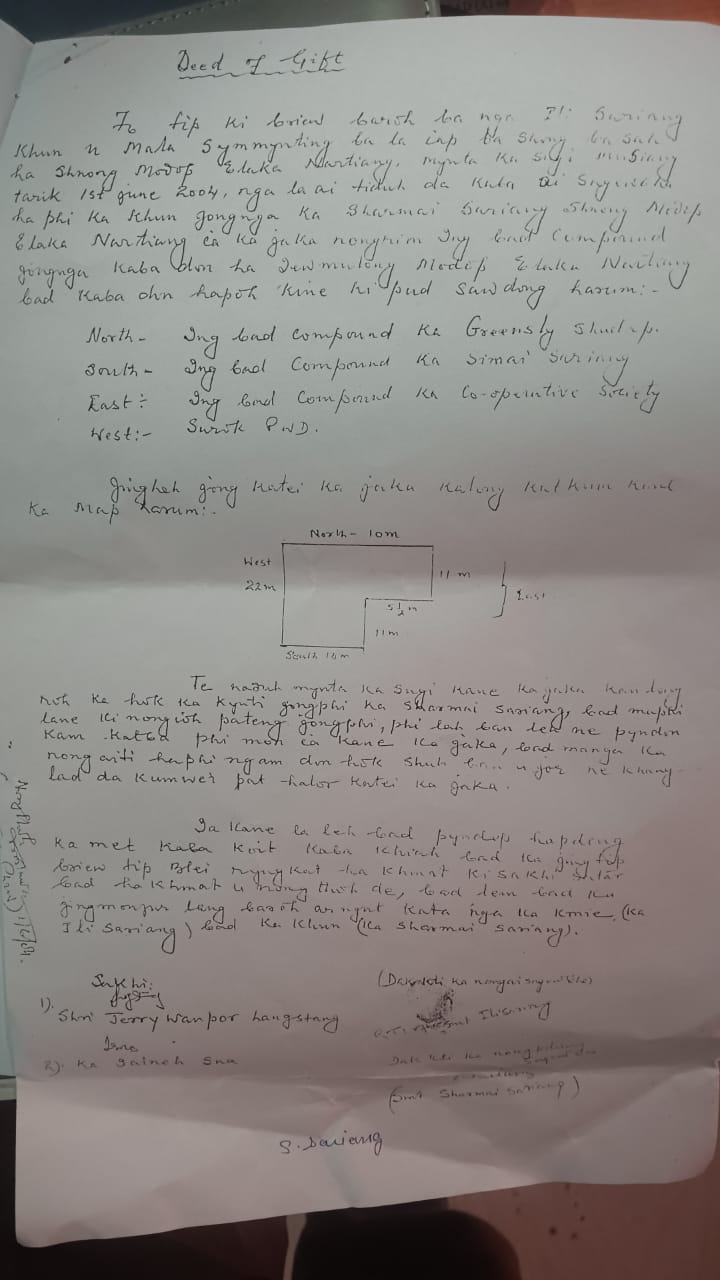 Deed of Gift
To tip ki briew baroh ba nga Ili Sariang
Khun u Mala Symmynting ba la iap ba shong ba sah
ha Shnong Modop Elaka Nartiang, mynta ka sngi
tarik 1st June 2004, nga la ai tiduh da kaba ai
ha phi ka khun jongnga ka Sharmai Sariang Shnong Modop
Elaka Nartiang ia ka jaka nongrim Ing bad Compound
jongnga kaba don ha Iewmulong Modop Elaka Nartiang
bad kaba don hapoh kine ki pud sawdong harum:-
North - Ing bad compound ka Greensly
South - Ing bad Compound ka Simai Sariang
East :- Ing bad Compound ka Co-operative Society
West:- Surok PWD.
Jingheh jong katei ka jaka kalong kat kum kane
ka map harum:-
North - 10m
West
22m
11 m
East
5 1/2 m
11m
South 10 m
Te naduh mynta ka sngi kane ka jaka kan dong
noh ka hok ka kynti jongphi ka Sharmai Sariang, bad
lane ki nongioh pateng jongphi, phi lah ban leh ne pyndon
kam katba phi mon ia kane ka jaka, bad manga ka
nong aiti haphi ngam don hok shuh ban ne khang
lad da kumwei pat halor katei ka jaka.
Ia kane la leh bad pyndep hapdeng
ka met kaba koit kaba khiah bad ka jing tip
briew tip Blei ryngkat ha khmat ki sakhi
bad ha khmat u nong thoh de, bad dem bad ka
jingmonpur lang baroh ar ngut kata nga ka kmie, (ka
Ili Sariang) bad ka khun (ka Sharmai Sariang).
Sakhi:
1). Shri Jerry Wanpor Langstang
2). Ka Jaineh Sna
(Dak kti ka nongai)
Smt Ili Sariang
Dak kti ka nong
(Smt Sharmai Sariang)
S. Sariang